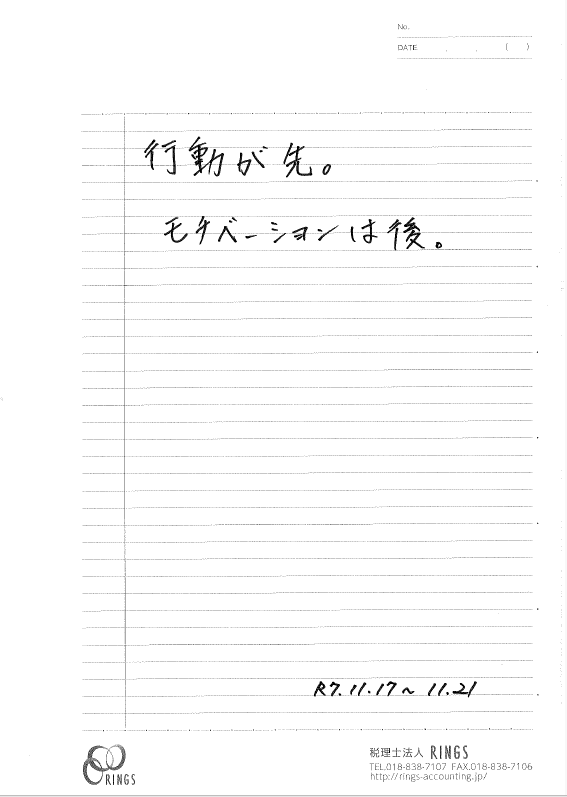 No.
DATE . . ( )
行動が先。
モチベーションは後。
R7.11.17~11.21
RINGS
税理士法人 RINGS
TEL.018-838-7107 FAX.018-838-7106
http://rings-accounting.jp/